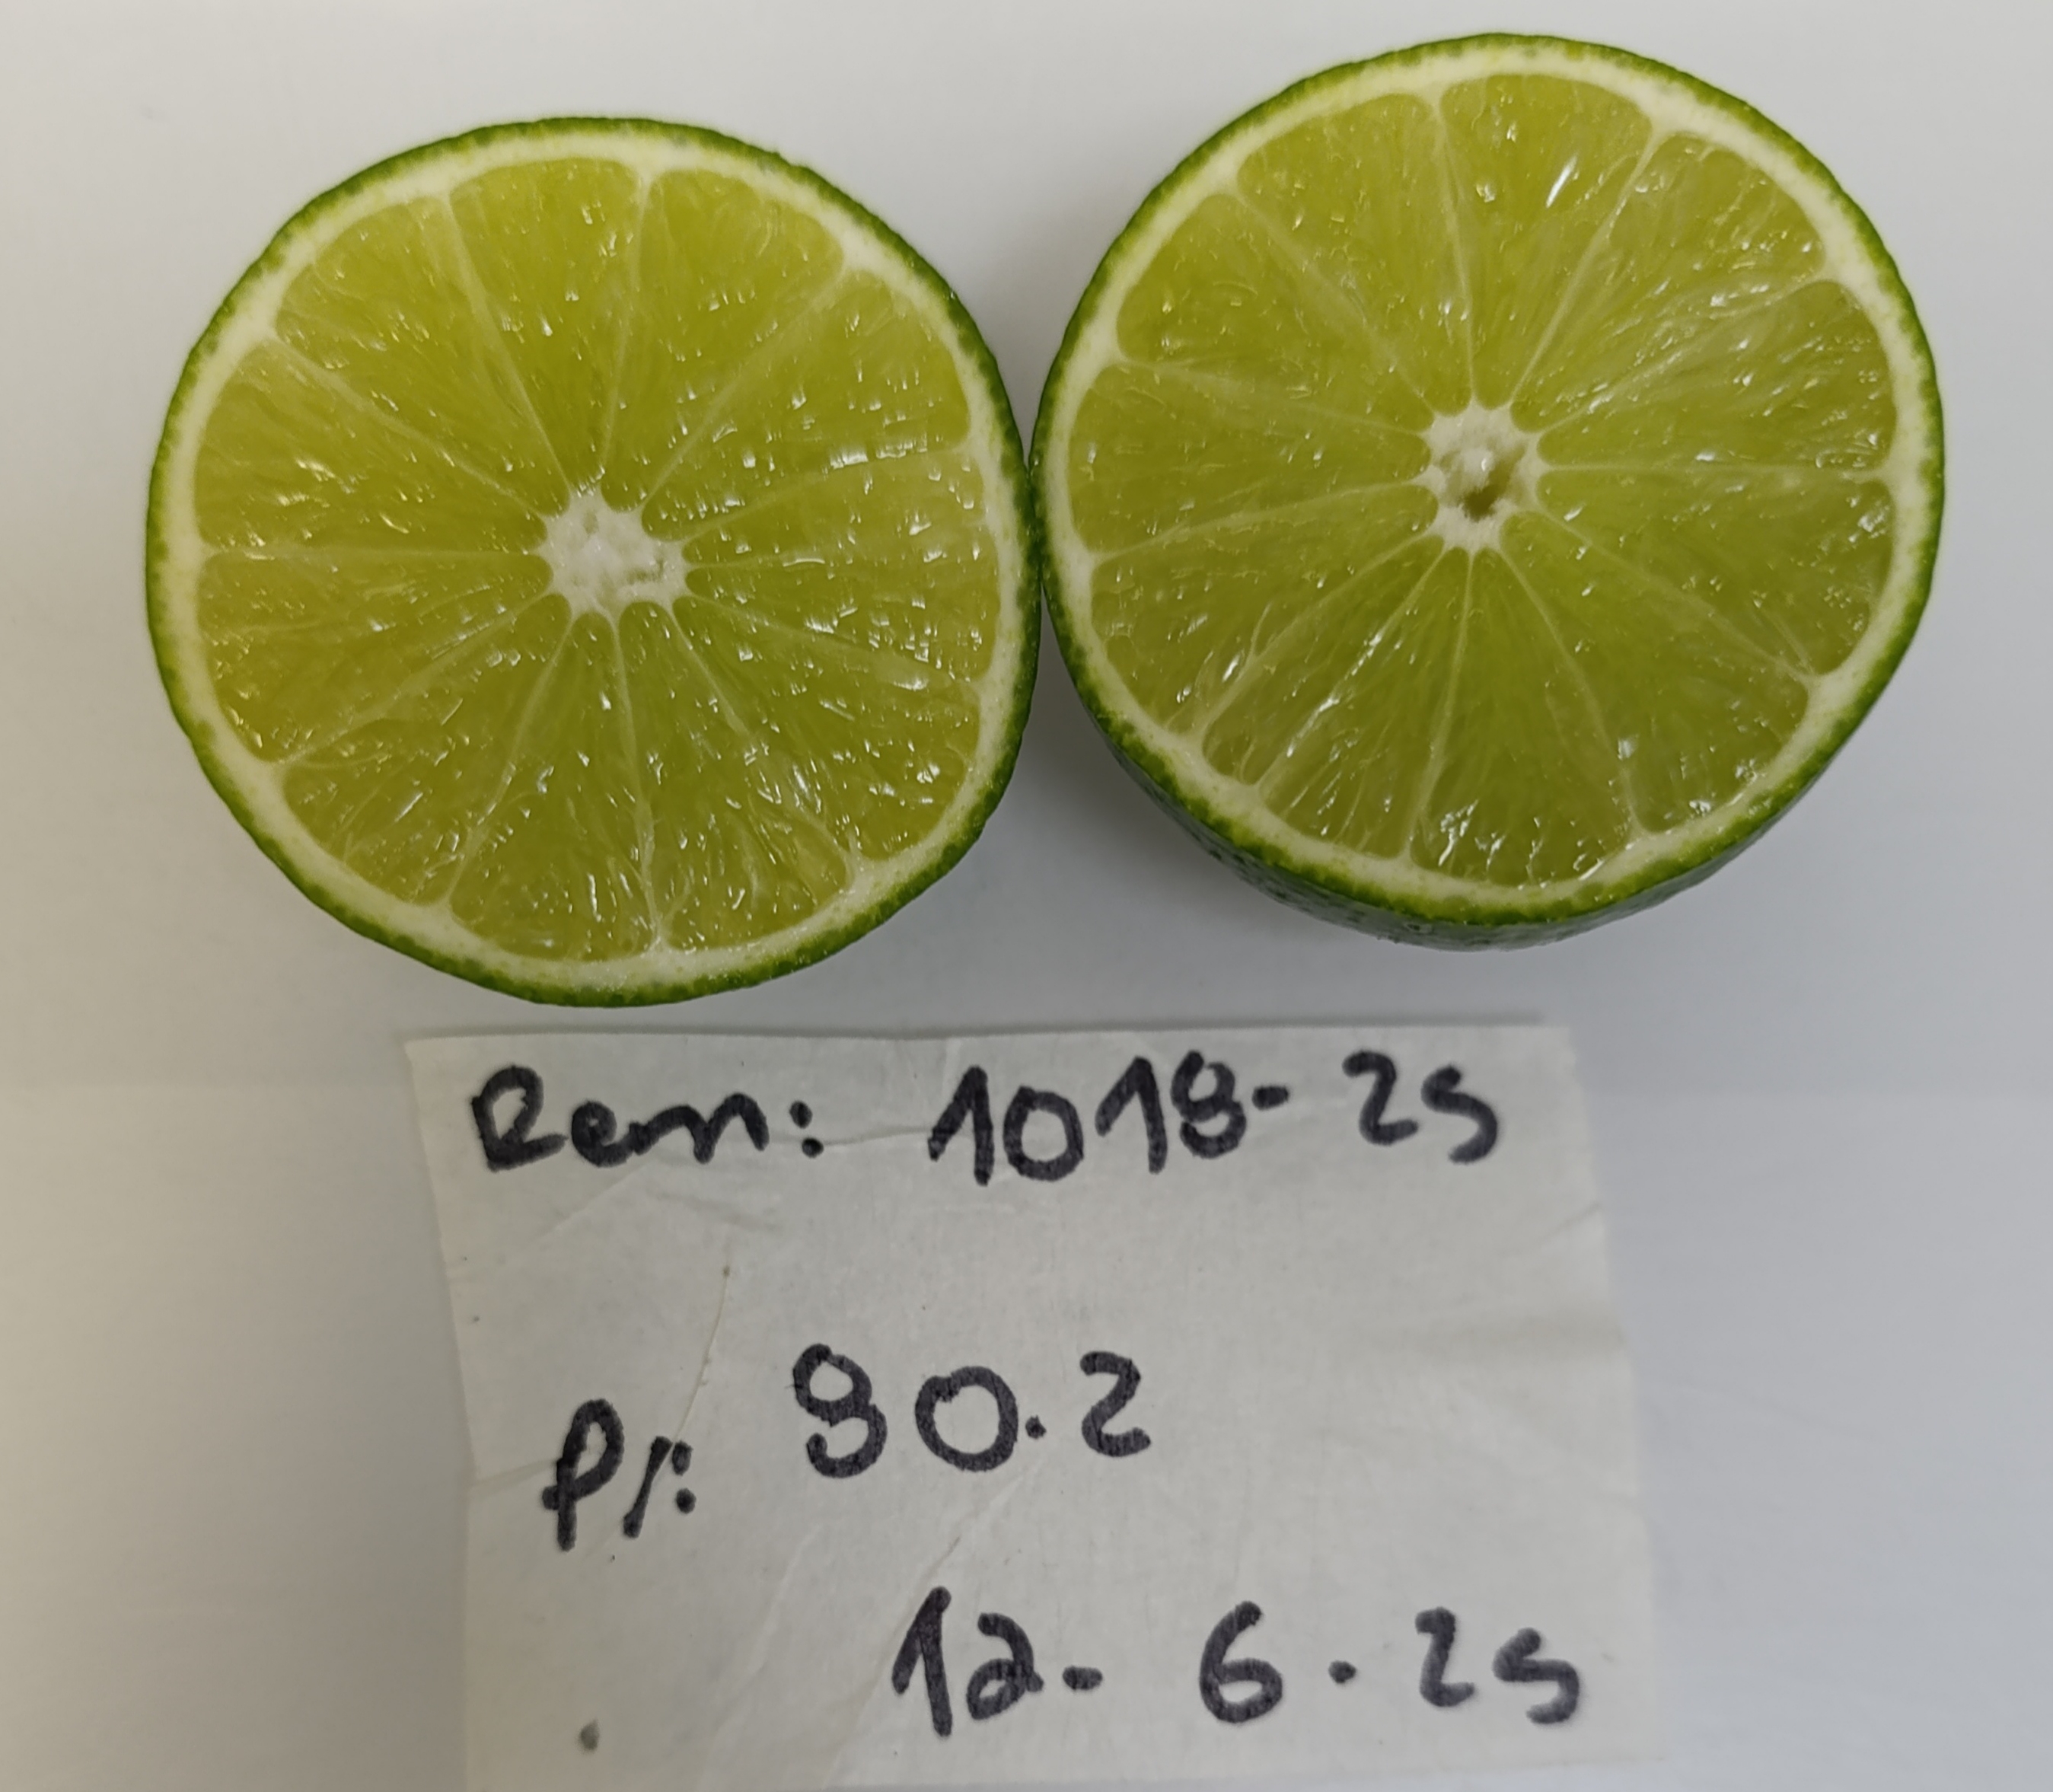 Rem: 1018-25
P/: 80.2
12-6.25